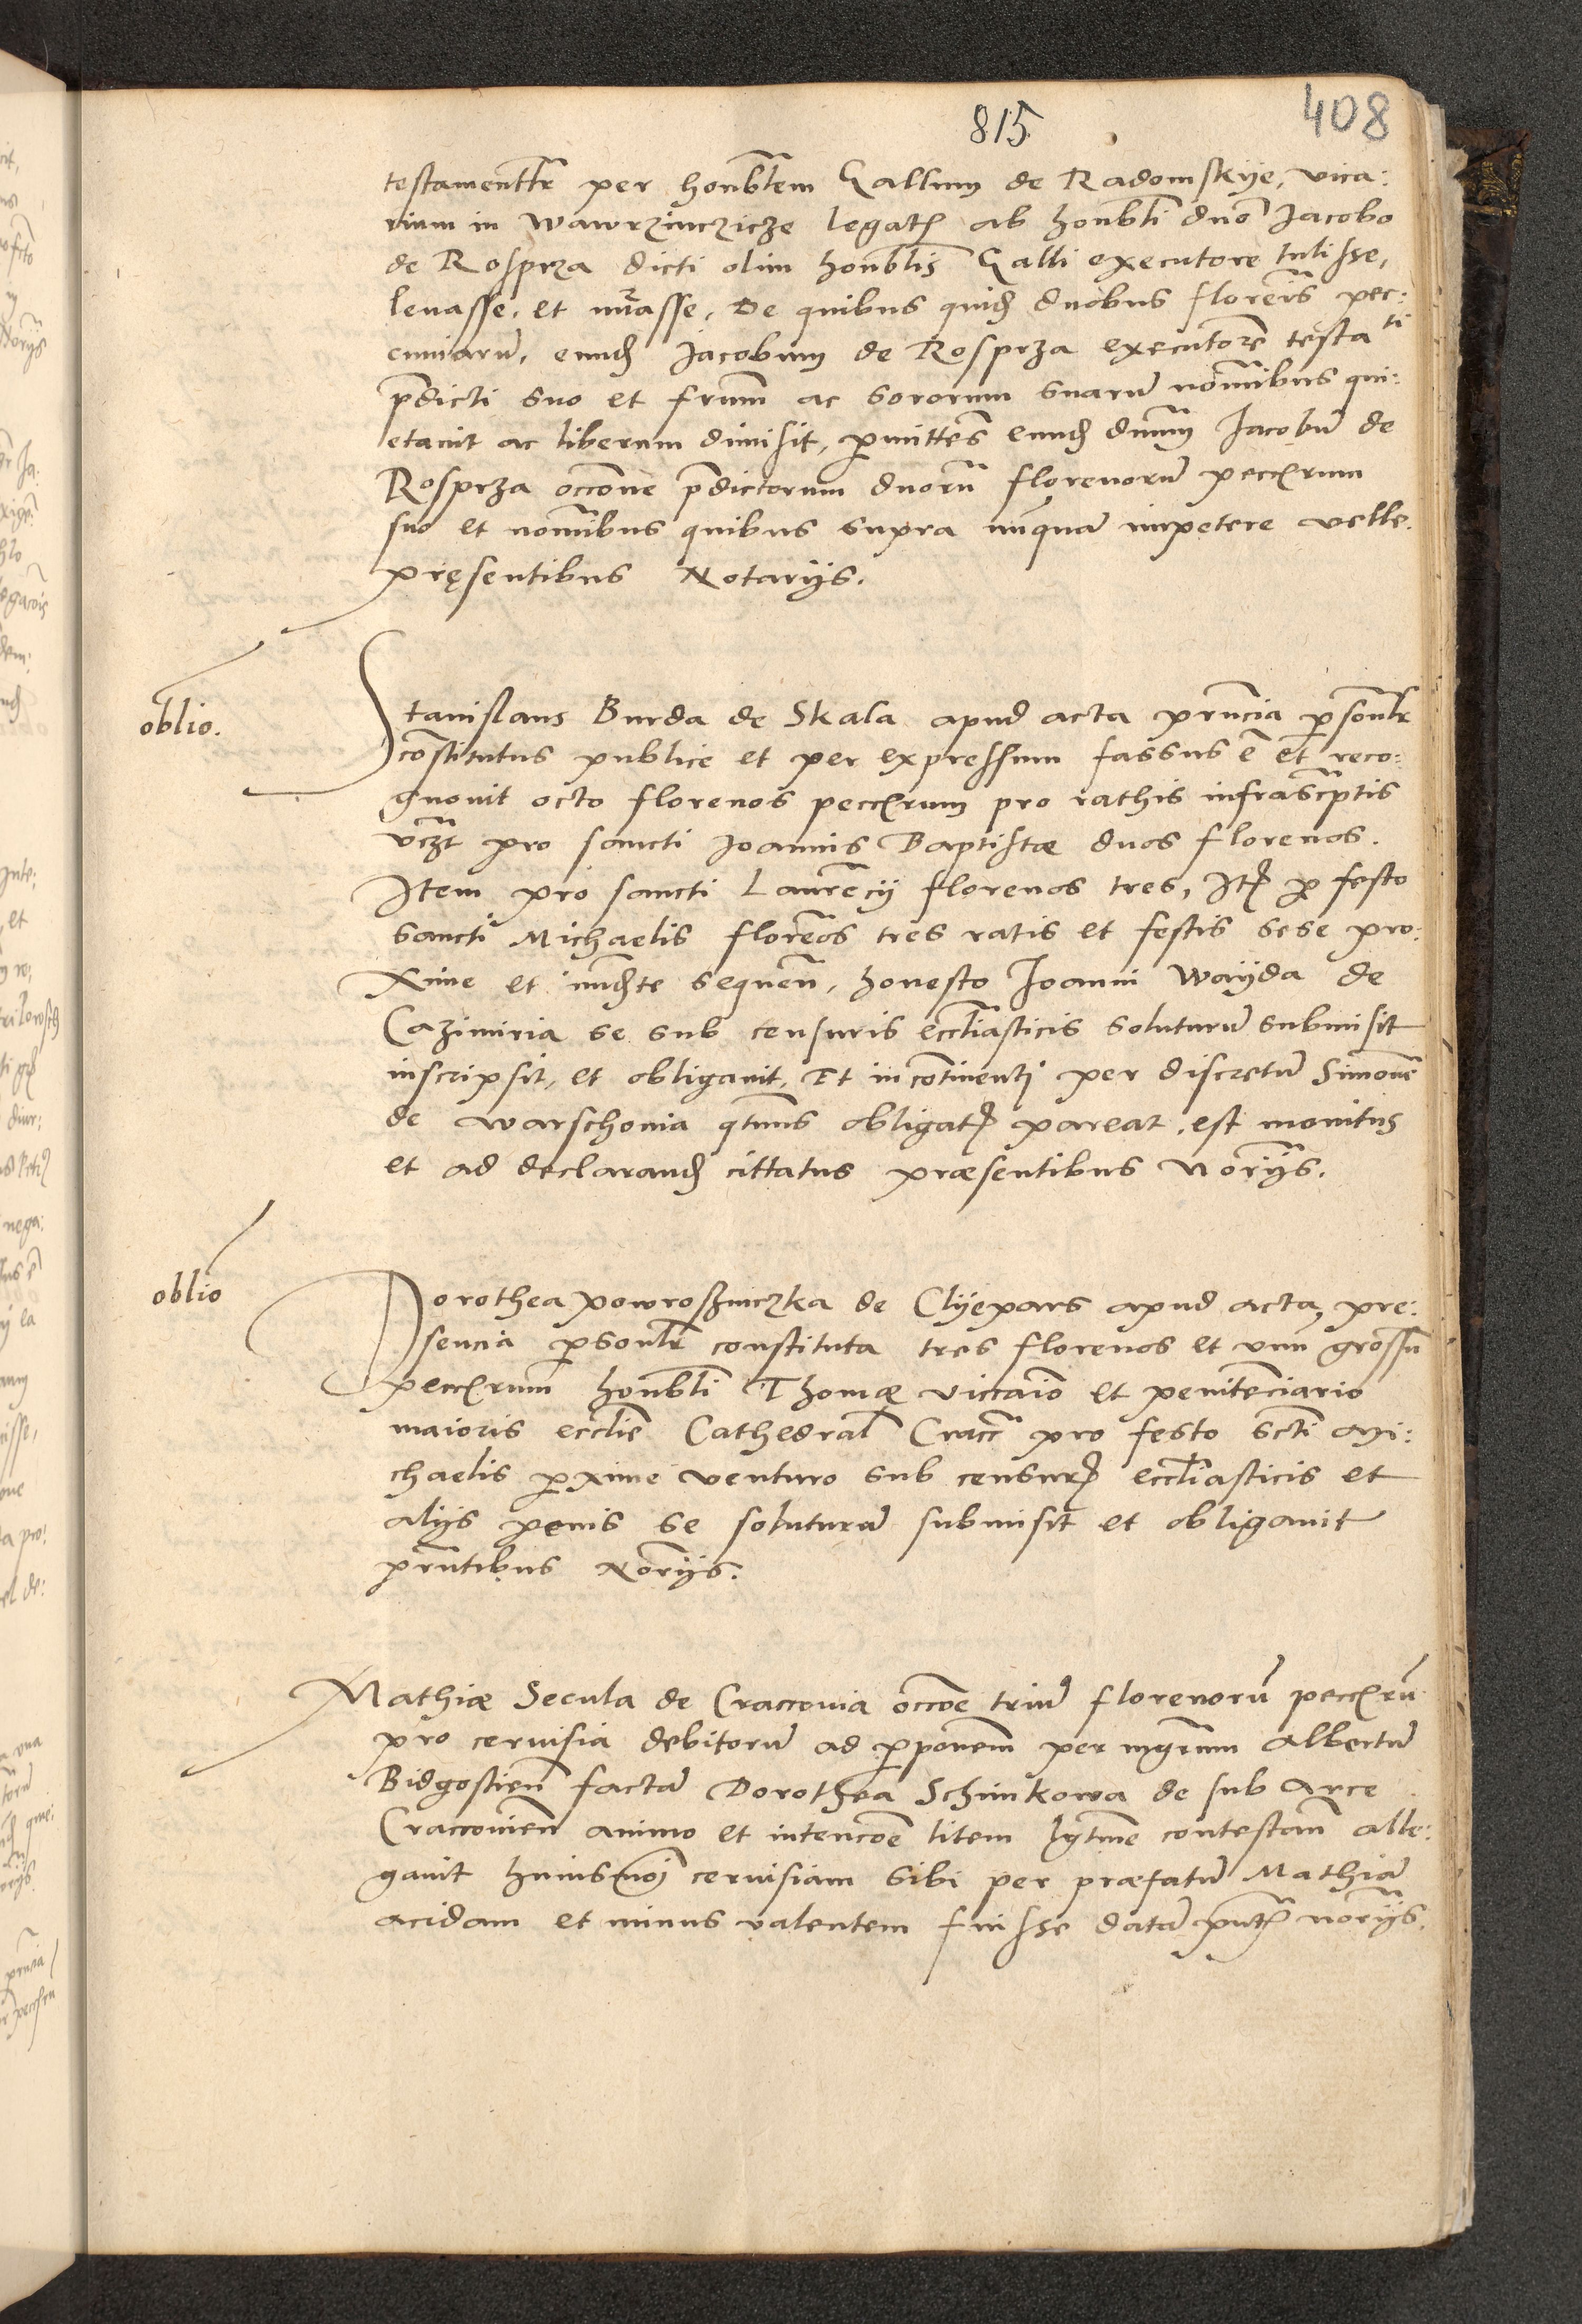 815
408
testamenttr per honbłem Gallum de Radomskye, vica:
rium in Wawrzinczicze legatꝭ ab honbłi dno Jacobo
de Rosprza dicti olim honblis Galli executore tulisse,
leuasse, et mrasse, De quibus quidꝫ duobus florenis pec:
cuniarū, eundꝫ Jacobum de Rosprza executorē testati
p̄dicti suo et frum̄ ac sororum suarū noīnibus qui:
etauit ac liberum dimisit, ꝓmittens eundꝫ dnum Jacobū de
Rosprza occōne p̄dictorum duorū florenorū pecc̄rum
suo et noīnibus quibus supra nunquā impetere velle.
pręsentibus Notarijs.
oblio.
Stanislaus Burda de Skala apud acta prn̄cia ꝑsonłr
cōstitutus publice et per expressum fassus ē et reco:
gnouit octo florenos pecc̄rum pro rathis infrascr̄ptis
vczt pro sancti Joannis Baptistæ duos florenos.
Item pro sancti Laurēcij florenos tres, Itꝫ ꝓ festo
sancti Michaelis florēos tres ratis et festis sese pro:
xime et im̄dꝫte sequen̄, honesto Joanni Wayda de
Cazimiria se sub censuris eccłiasticis soluturū submisit
inscripsit, et obligauit, Et in cōtinenti per discretū Simonē
de Warschouia qtnus obligatꝭ pareat, est monitus
et ad declarandꝫ cittatus præsentibus Norijs.
oblio
Dorothea Powroźniczka de Clyepars apud acta pre:
sencia ꝑsonłr constituta tres florenos et vnū grossū
pecc̄rum honbłi Thomæ viccaio et penitēciario
maioris ecclie Cathedral Cracc̄ pro festo scti Mi:
chaelis ꝓxime venturo sub censurꝭ eccłiasticis et
alijs penis se soluturā submisit et obligauit
prn̄tibus Norijs.
Mathiæ Secula de Craccouia occōe triū florenorū pecc̄rū
pro ceruisia debitorū ad ꝓponem per mgrum Albertū
Bidgostien̄ factā Dorothea Schimkowa de sub Arce
Craccouien̄ animo et intencōe litem lgtme contestan̄ alle:
gauit huiusmōi ceruisiam sibi per præfatū Mathiā
acidam et minus valentem fuisse datā pn̄tꝭ norijs.